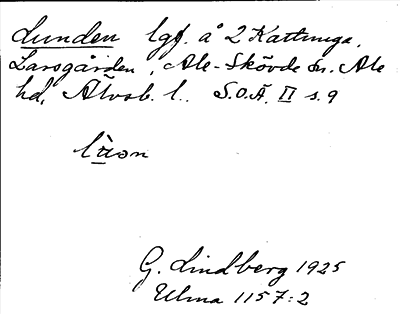 Lunden lgf. å 2 Kattunga,
Larsgården, Ale-Skövde sn. Ale
hd, Älvsb. l.. S.O.Ä. II s. 9
G. Lindberg 1925
Ulma 1157:2